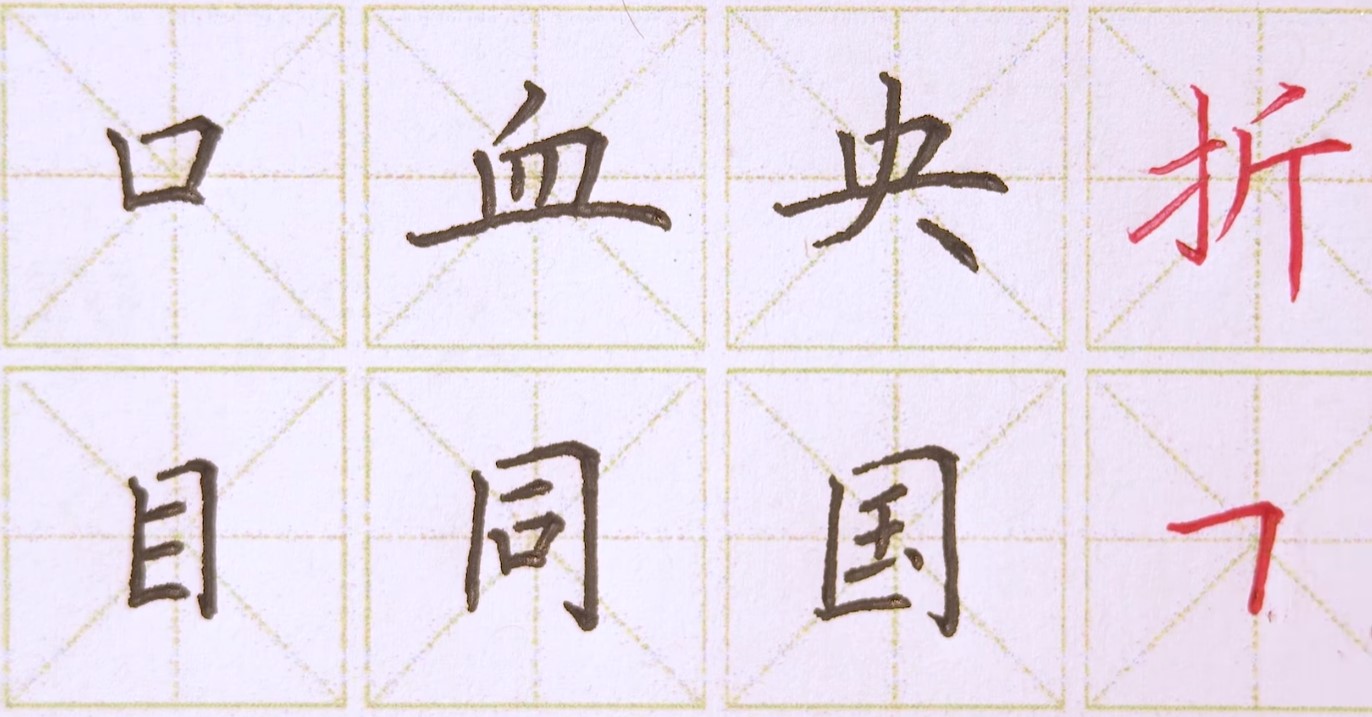 口血央折
目同国㇕